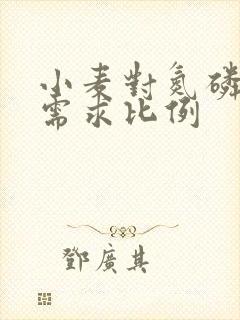 小麦對氮磷
需求比例
鄧廣其